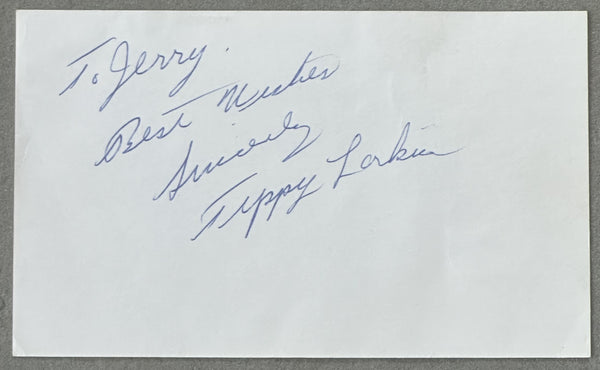 To Jerry.
Best Wishes
Sincerely
Tippy Larkin